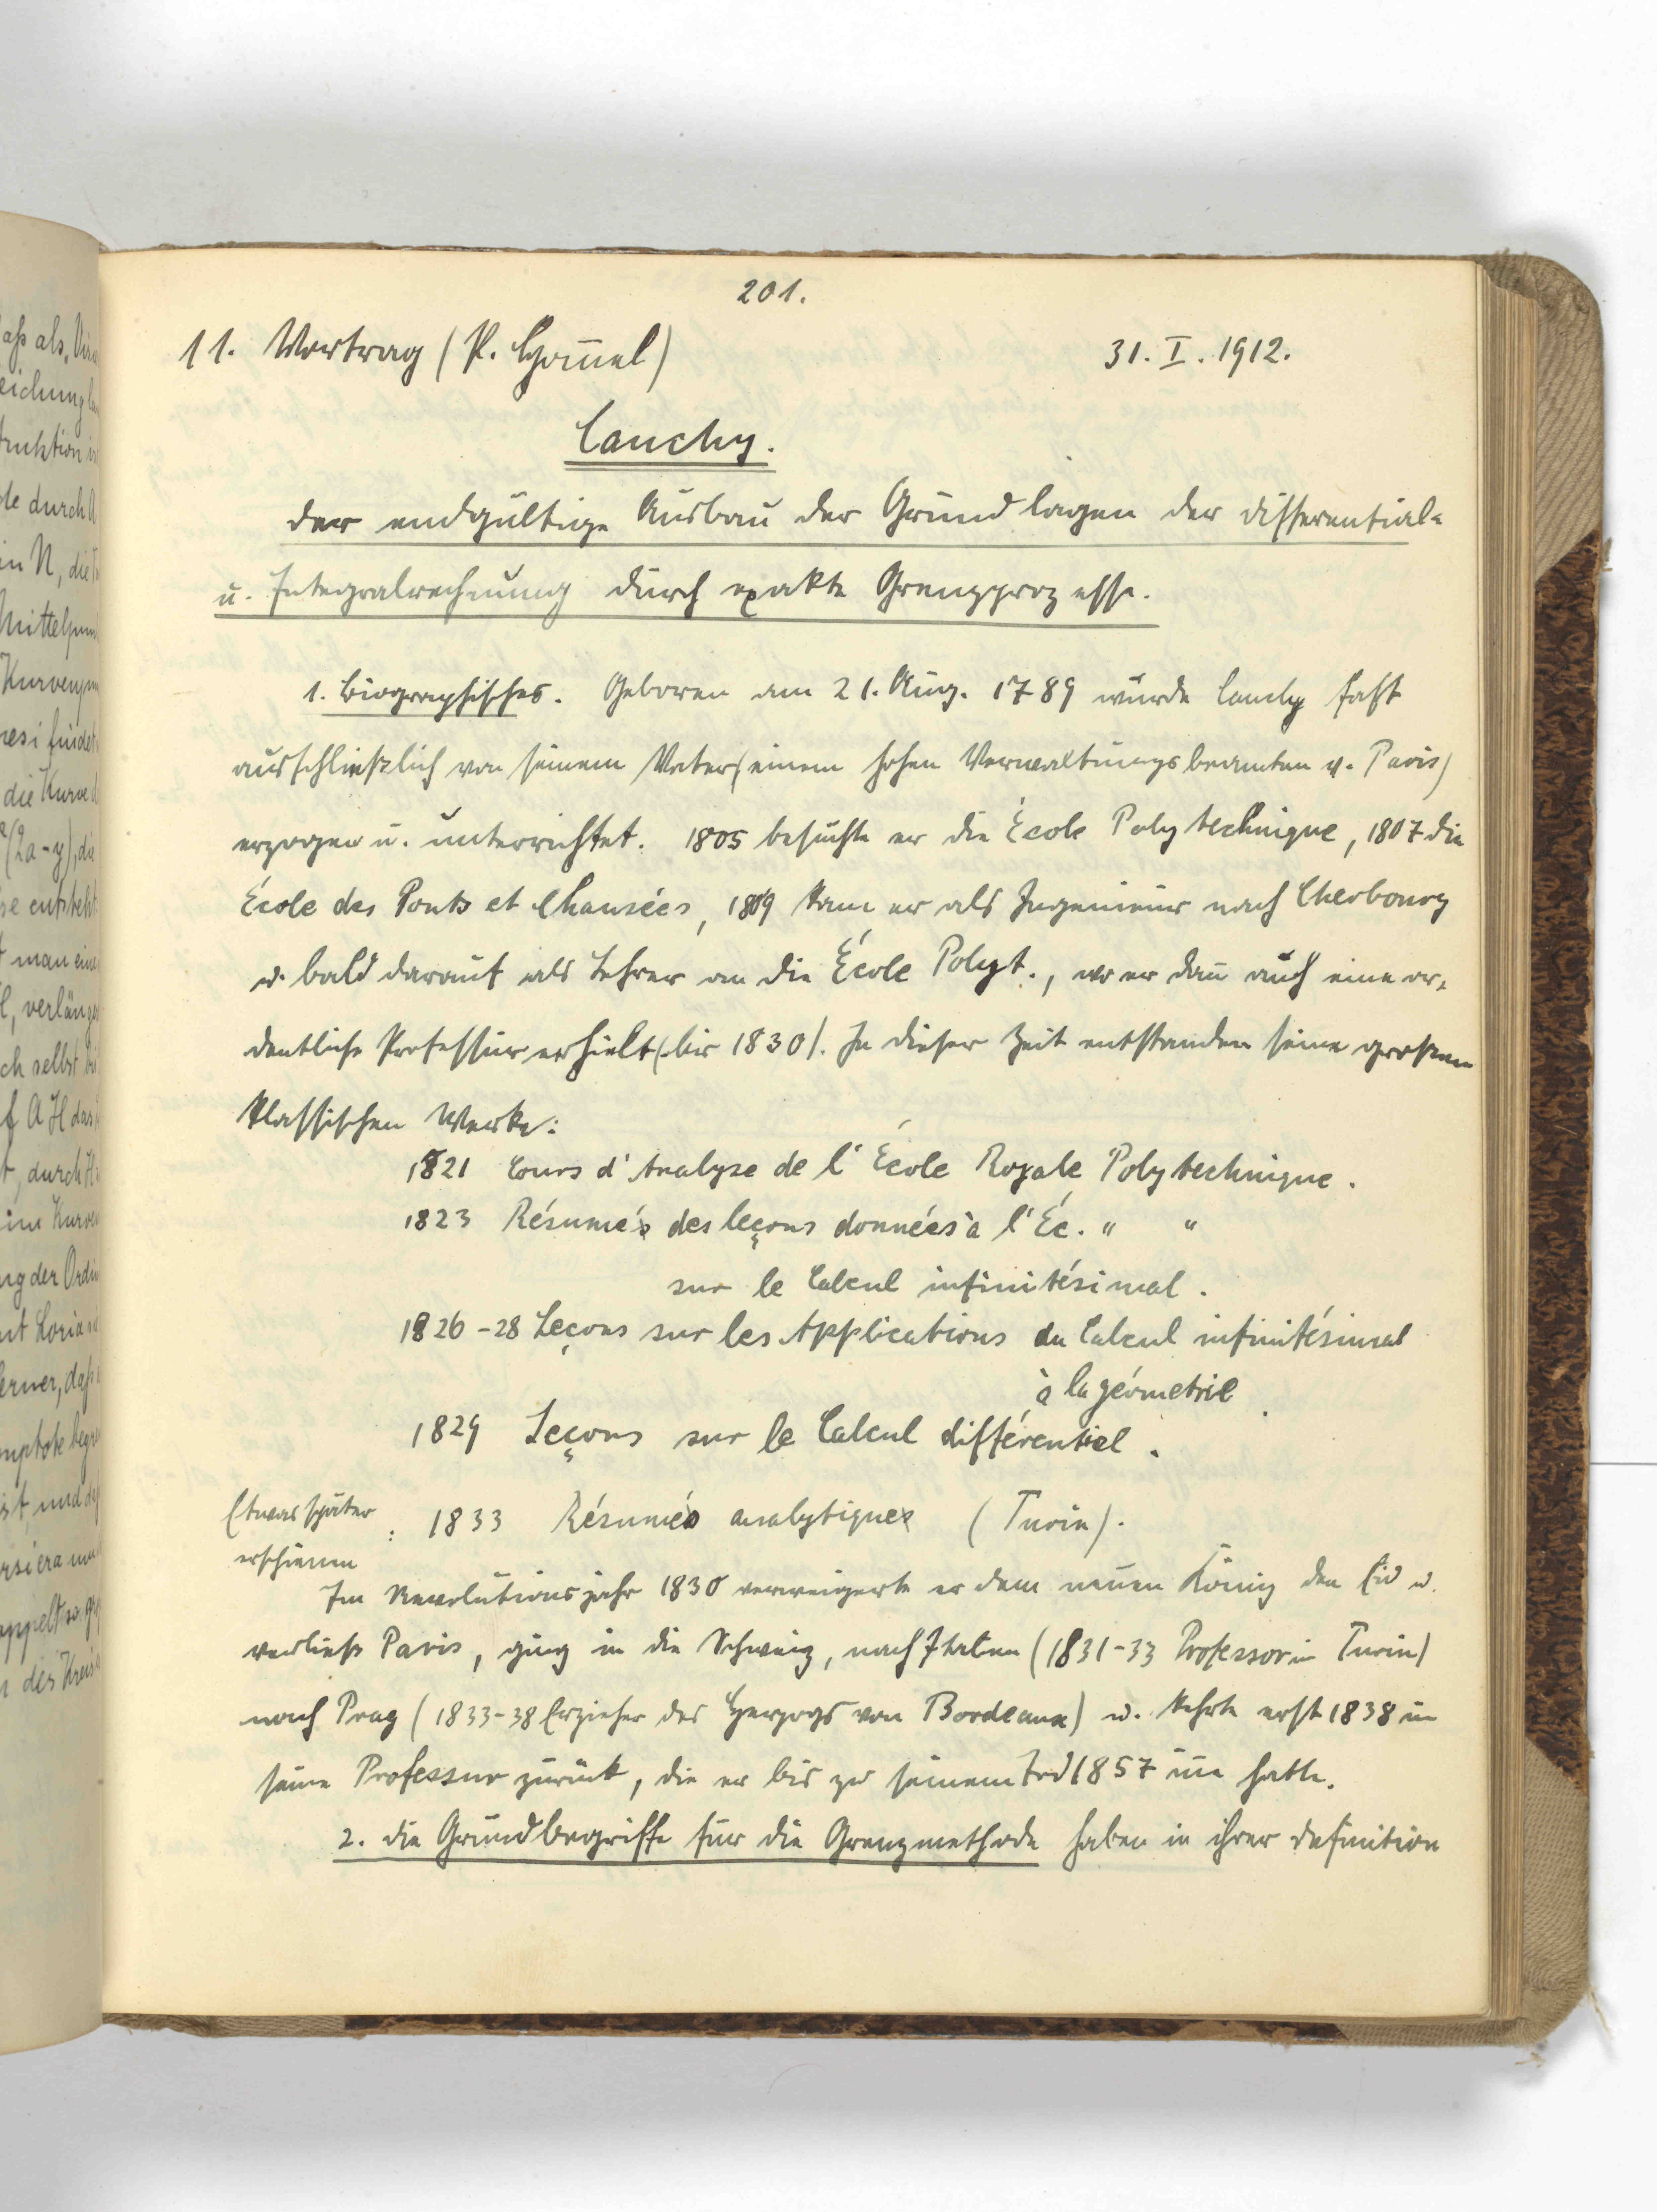 aß als „Vir
eichung
truktion in
de durch A
in N, die
Mittelpun
Kurven
resi findet
die Kurve
(2a-y), di
se entsteht
man eine
l, verläng
ch selbst
f AH das
t, durch H
im Kurve
ng der Ordi
nt Loria
erner, daß
mptote
ist, und
rsiera
oppelt so
des Kreis
201.
11. Vortrag (P. Hom̄el) 31. I. 1912.
Cauchy.
Der endgültige Ausbau der Grundlagen der Differential-
u. Integralrechnung durch exakte Grenzprozesse.
1. Biographisches. Geboren am 21. Aug. 1789 wurde Cauchy fast
ausschließlich von seinem Vater (einem hohen Verwaltungsbeamten v. Paris)
erzogen u. unterrichtet. 1805 besuchte er die École Polytechnique, 1807 die
École des Ponts et Chausées, 1809 kam er als Ingenieur nach Cherbourg
u. bald darauf als Lehrer an die École Polyt., wo er dan̄ auch eine or-
dentliche Professur erhielt (bis 1830). In dieser Zeit entstanden seine grossen
klassischen Werke:
1821 Cours d'Analyse de l'École Royale Polytechnique.
1823 Résumés des leçons données à l'Éc. " "
sur le Calcul infinitésimal.
1826-28 Leçons sur les Applications du Calcul infinitésimal
à la géometrie.
1829 Leçons sur le Calcul différentiel.
Etwas später
erschienen : 1833 Résumés analytiques (Turin).
Im Revolutionsjahr 1830 verweigerte er dem neuen König den Eid u.
verließ Paris, ging in die Schweiz, nach Italien (1831-33 Professor in Turin)
nach Prag (1833-38 Erzieher des Herzogs von Bordeaux) u. kehrte erst 1838 in
seine Professur zurück, die er bis zu seinem Tod 1857 in̄e hatte.
2. Die Grundbegriffe für die Grenzmethode haben in ihrer Definition